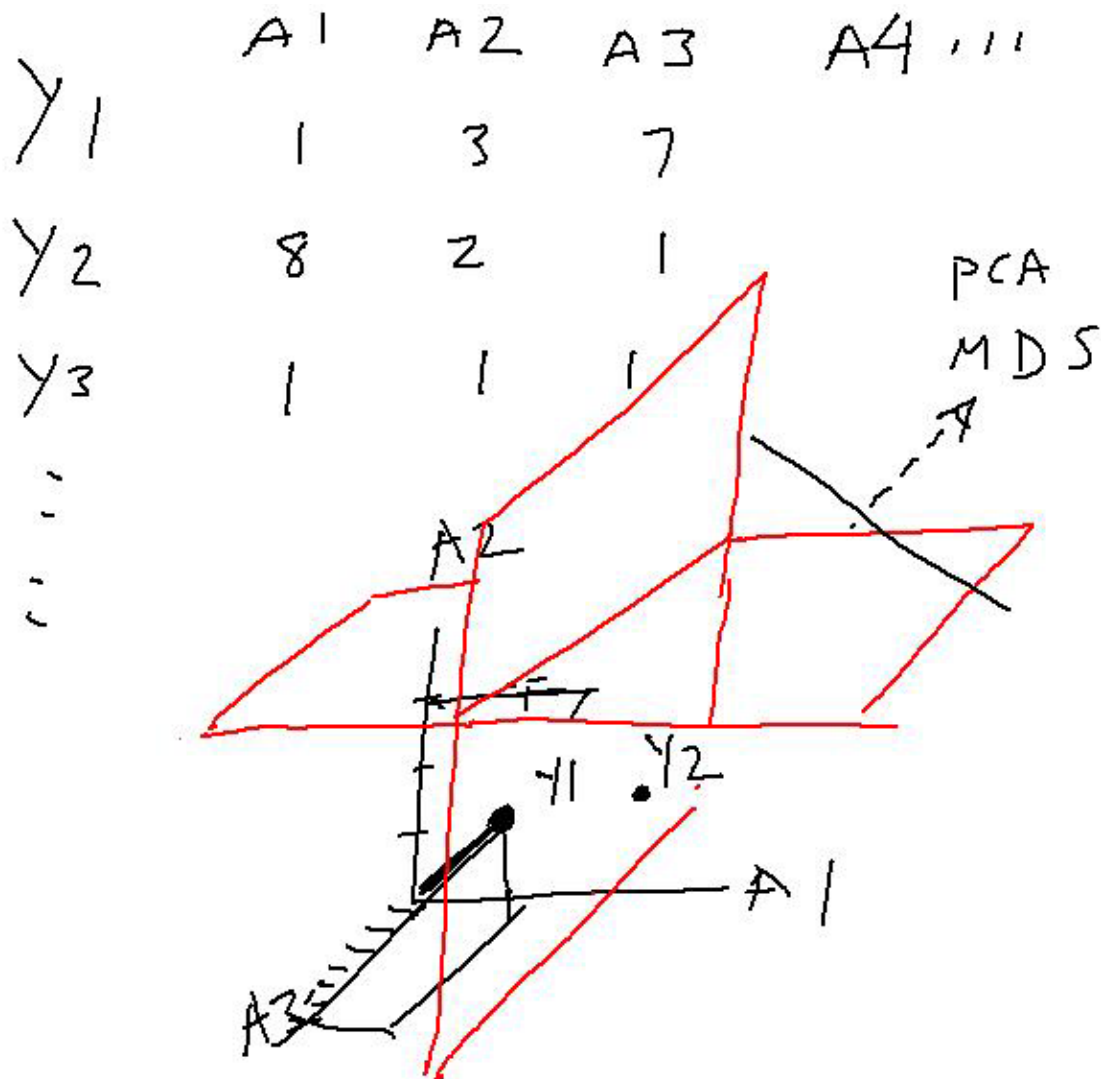 A1 A2 A3 A4 ...
Y1 1 3 7
Y2 8 2 1
Y3 1 1 1
PCA
MDS
A2
Y1
Y2
A1
A3